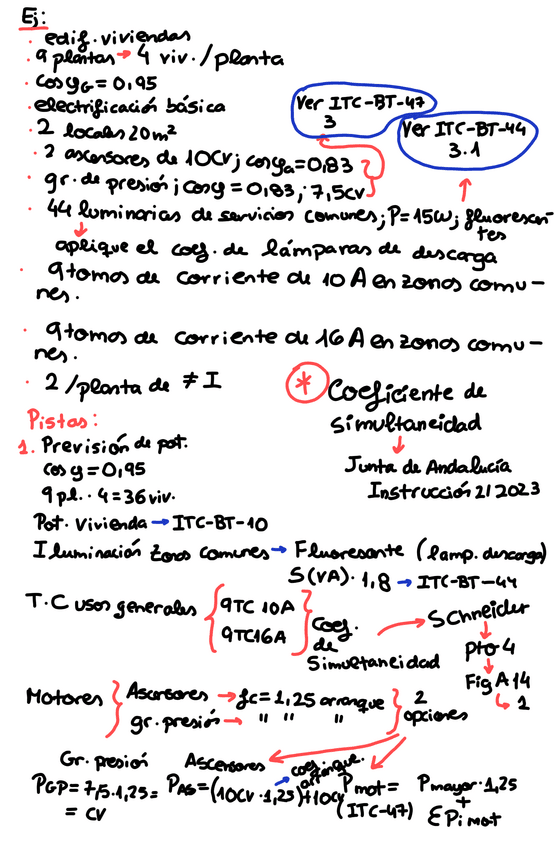 Ej:
· edif. viviendas
· 9 plantas → 4 viv. / planta
· cos φG = 0,95
· electrificación básica
· 2 locales 20 m²
· 2 ascensores de 10CV; cosφa = 0,83
· gr. de presión; cosφ = 0,83; 7,5cv
Ver ITC-BT-47
3
Ver ITC-BT-44
3.1
· 44 luminarias de servicios comunes; P=15W; fluorescen-
tes
aplique el coef. de lámparas de descarga
· 9 tomas de corriente de 10 A en zonas comu-
nes.
· 9 tomas de corriente de 16 A en zonas comu-
nes.
· 2 / planta de ≠ I
* Coeficiente de
simultaneidad
↓
Junta de Andalucía
Instrucción 2/2023
Pistas:
1. Previsión de pot.
cos φ = 0,95
9 pl. · 4 = 36 viv.
Pot. Vivienda → ITC-BT-10
Iluminación zonas comunes → Fluorescente (lamp. descarga)
S(VA) · 1,8 → ITC-BT-44
T.C usos generales { 9TC 10A
9TC16A } Coef.
de
Simultaneidad
→ Schneider
↓
pto 4
↓
Fig A14
↳ 1
Motores } Ascensores → fc = 1,25 arranque
gr. presión → " " "
} 2
opciones
Gr. presión
PGP = 7,5·1,25 =
= CV
Ascensores
PAS = (10CV · 1,25) + 10CV
→ coef.
arranque.
Pmot =
(ITC-47)
Pmayor · 1,25
+
ΣPi mot